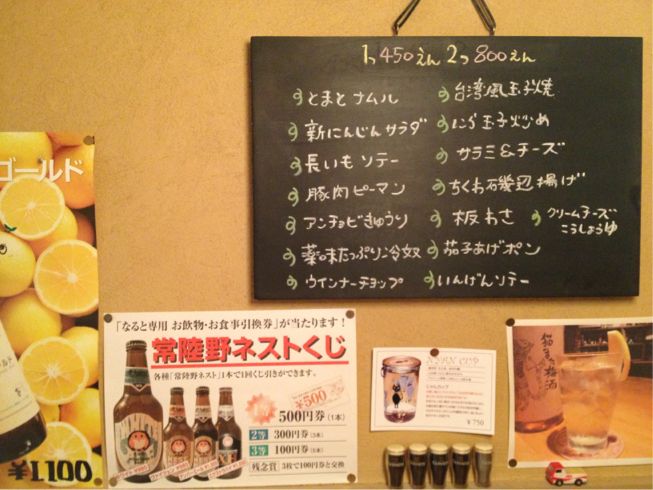 1つ450えん 2つ800えん
とまとナムル
新にんじんサラダ
長いもソテー
豚肉ピーマン
アンチョビきゅうり
薬味たっぷり冷奴
ウインナーチョップ
台湾風玉子焼
にら玉子炒め
サラミ&チーズ
ちくわ磯辺揚げ
板わさ
クリームチーズ
こうしょうゆ
茄子あげポン
いんげんソテー
ゴールド
¥1100
「なると専用 お飲物・お食事引換券」が当たります!
常陸野ネストくじ
各種「常陸野ネスト」1本で1回くじ引きができます。
¥500
500円券(1本)
2等 300円券(3本)
3等 100円券(5本)
残念賞 3枚で100円券と交換
¥750
梅酒